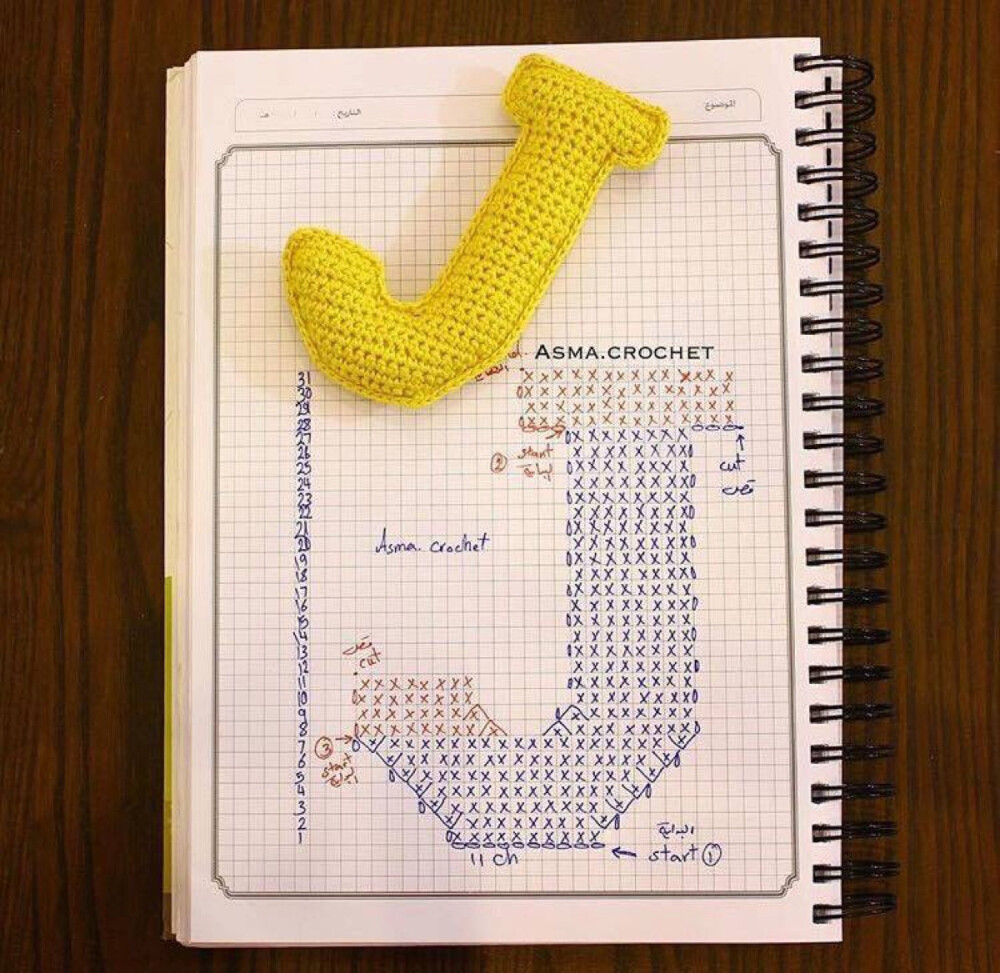 الموضوع:
التاريخ: / / هـ
ASMA.CROCHET
31
30
29
28
27
26
25
24
23
22
21
20
19
18
17
16
15
14
13
12
11
10
9
8
7
6
5
4
3
2
1
cut
قص
② start
البداية
Asma. crochet
قص
cut
③
start
البداية
البداية
start ①
11 ch